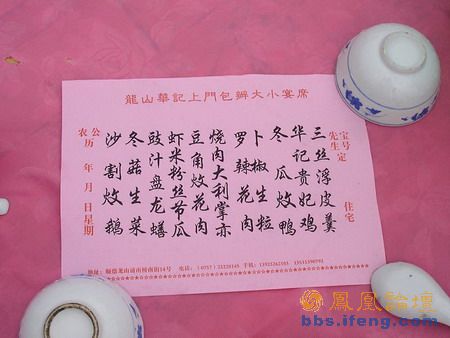 龍山華記上門包辦大小宴席
宝号定
先生 住宅
三丝浮皮羹
华记贵妃鸡
冬瓜炆鸭
罗卜辣椒花生肉粒
烧肉大利掌亦
豆角炆花肉
虾米粉丝节瓜
豉汁盘龙鳝
冬菇生菜
沙割炆鹅
公
农历 年 月 日 星期
地址：顺德龙山 南街14号 电话：(0757) 手机：
鳳凰論壇
bbs.ifeng.com